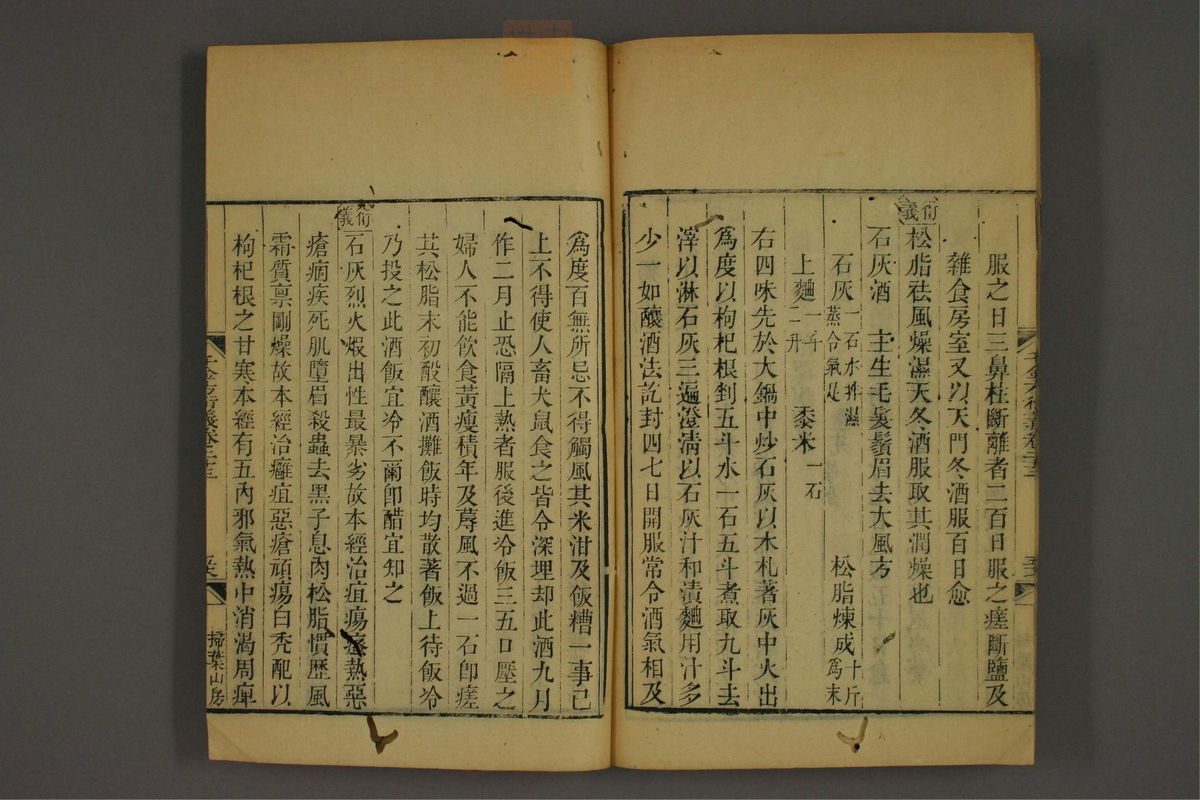 服之日三鼻柱斷離者二百日服之瘥斷鹽及
雜食房室又以天門冬酒服百日愈
衍義
松脂祛風燥濕天冬酒服取其潤燥也
石灰酒 主生毛髮鬚眉去大風方
石灰一石水拌濕蒸令氣足 松脂煉成十斤爲末
上麯一斗二升 黍米一石
右四味先於大鍋中炒石灰以木札著灰中火出
爲度以枸杞根剉五斗水一石五斗煮取九斗去
滓以淋石灰三遍澄清以石灰汁和漬麯用汁多
少一如釀酒法訖封四七日開服常令酒氣相及
爲度百無所忌不得觸風其米泔及飯糟一事已
上不得使人畜犬鼠食之皆令深埋却此酒九月
作二月止恐隔上熱者服後進冷飯三五口壓之
婦人不能飲食黃瘦積年及蓐風不過一石卽瘥
其松脂末初酘釀酒攤飯時均散著飯上待飯冷
乃投之此酒飯宜冷不爾卽醋宜知之
衍義
石灰烈火煅出性最暴劣故本經治疽瘍瘙熱惡
瘡癩疾死肌墮眉殺蟲去黑子息肉松脂慣歷風
霜質稟剛燥故本經治癰疽惡瘡頑瘍白禿配以
枸杞根之甘寒本經有五內邪氣熱中消渴周痺
掃葉山房